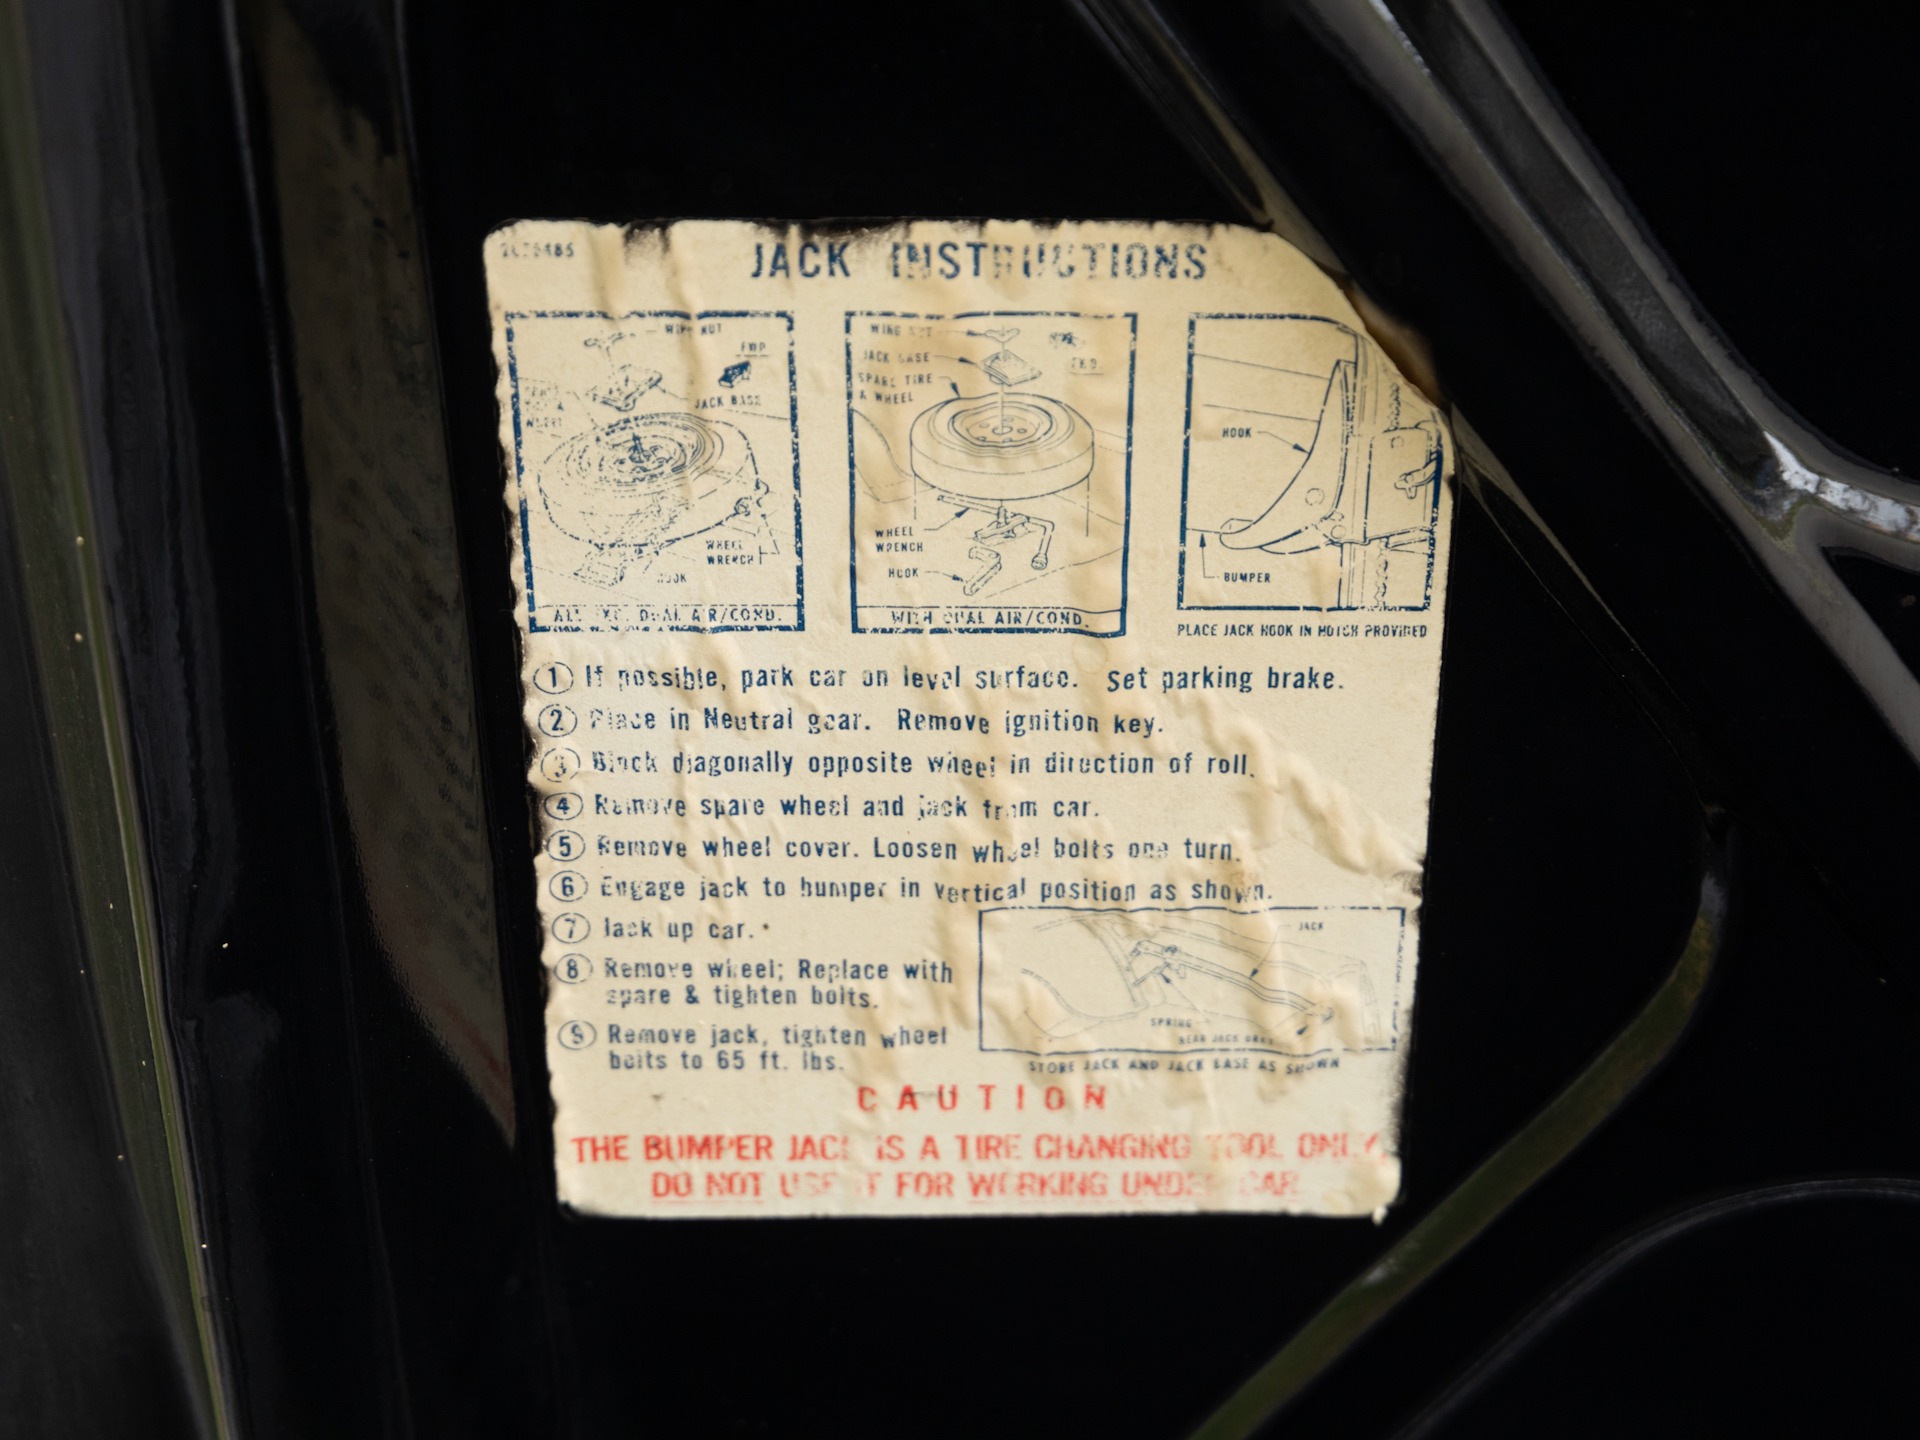 JACK INSTRUCTIONS
WING NUT
FWD
JACK BASE
WHEEL
WHEEL
WRENCH
HOOK
ALL EXC. DUAL AIR/COND.
WING NUT
JACK BASE
FWD.
SPARE TIRE
& WHEEL
WHEEL
WRENCH
HOOK
WITH DUAL AIR/COND.
HOOK
BUMPER
PLACE JACK HOOK IN NOTCH PROVIDED
1 If possible, park car on level surface. Set parking brake.
2 Place in Neutral gear. Remove ignition key.
3 Block diagonally opposite wheel in direction of roll.
4 Remove spare wheel and jack from car.
5 Remove wheel cover. Loosen wheel bolts one turn.
6 Engage jack to bumper in vertical position as shown.
7 Jack up car.
8 Remove wheel; Replace with
spare & tighten bolts.
9 Remove jack, tighten wheel
bolts to 65 ft. lbs.
JACK
SPRING
REAR JACK
STORE JACK AND JACK BASE AS SHOWN
CAUTION
THE BUMPER JACK IS A TIRE CHANGING TOOL ONLY
DO NOT USE IT FOR WORKING UNDER CAR